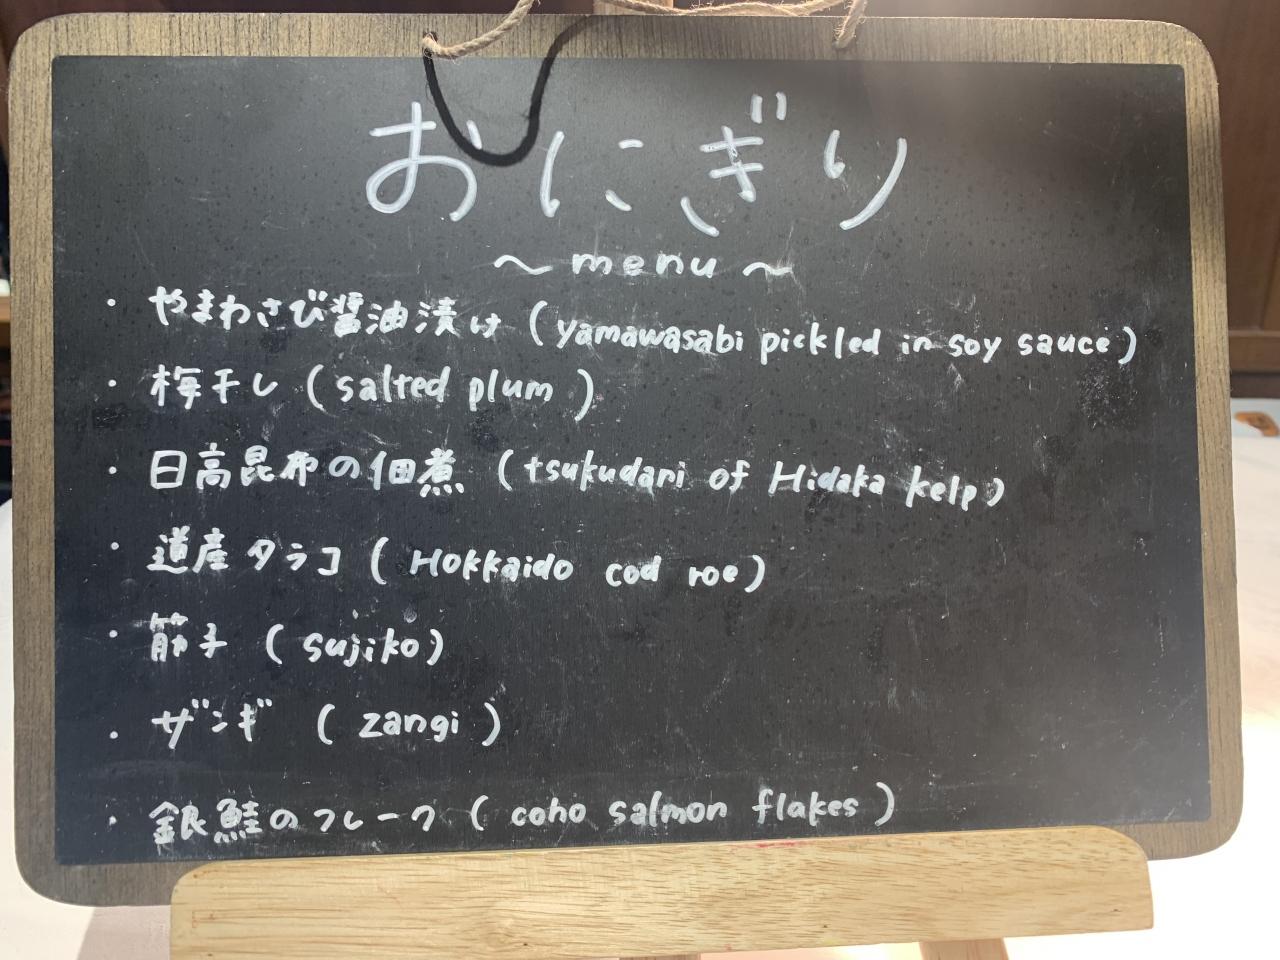 おにぎり
～menu～
・やまわさび醤油漬け (yamawasabi pickled in soy sauce)
・梅干し (salted plum)
・日高昆布の佃煮 (tsukudani of Hidaka kelp)
・道産タラコ (Hokkaido cod roe)
・筋子 (sujiko)
・ザンギ (zangi)
・銀鮭のフレーク (coho salmon flakes)